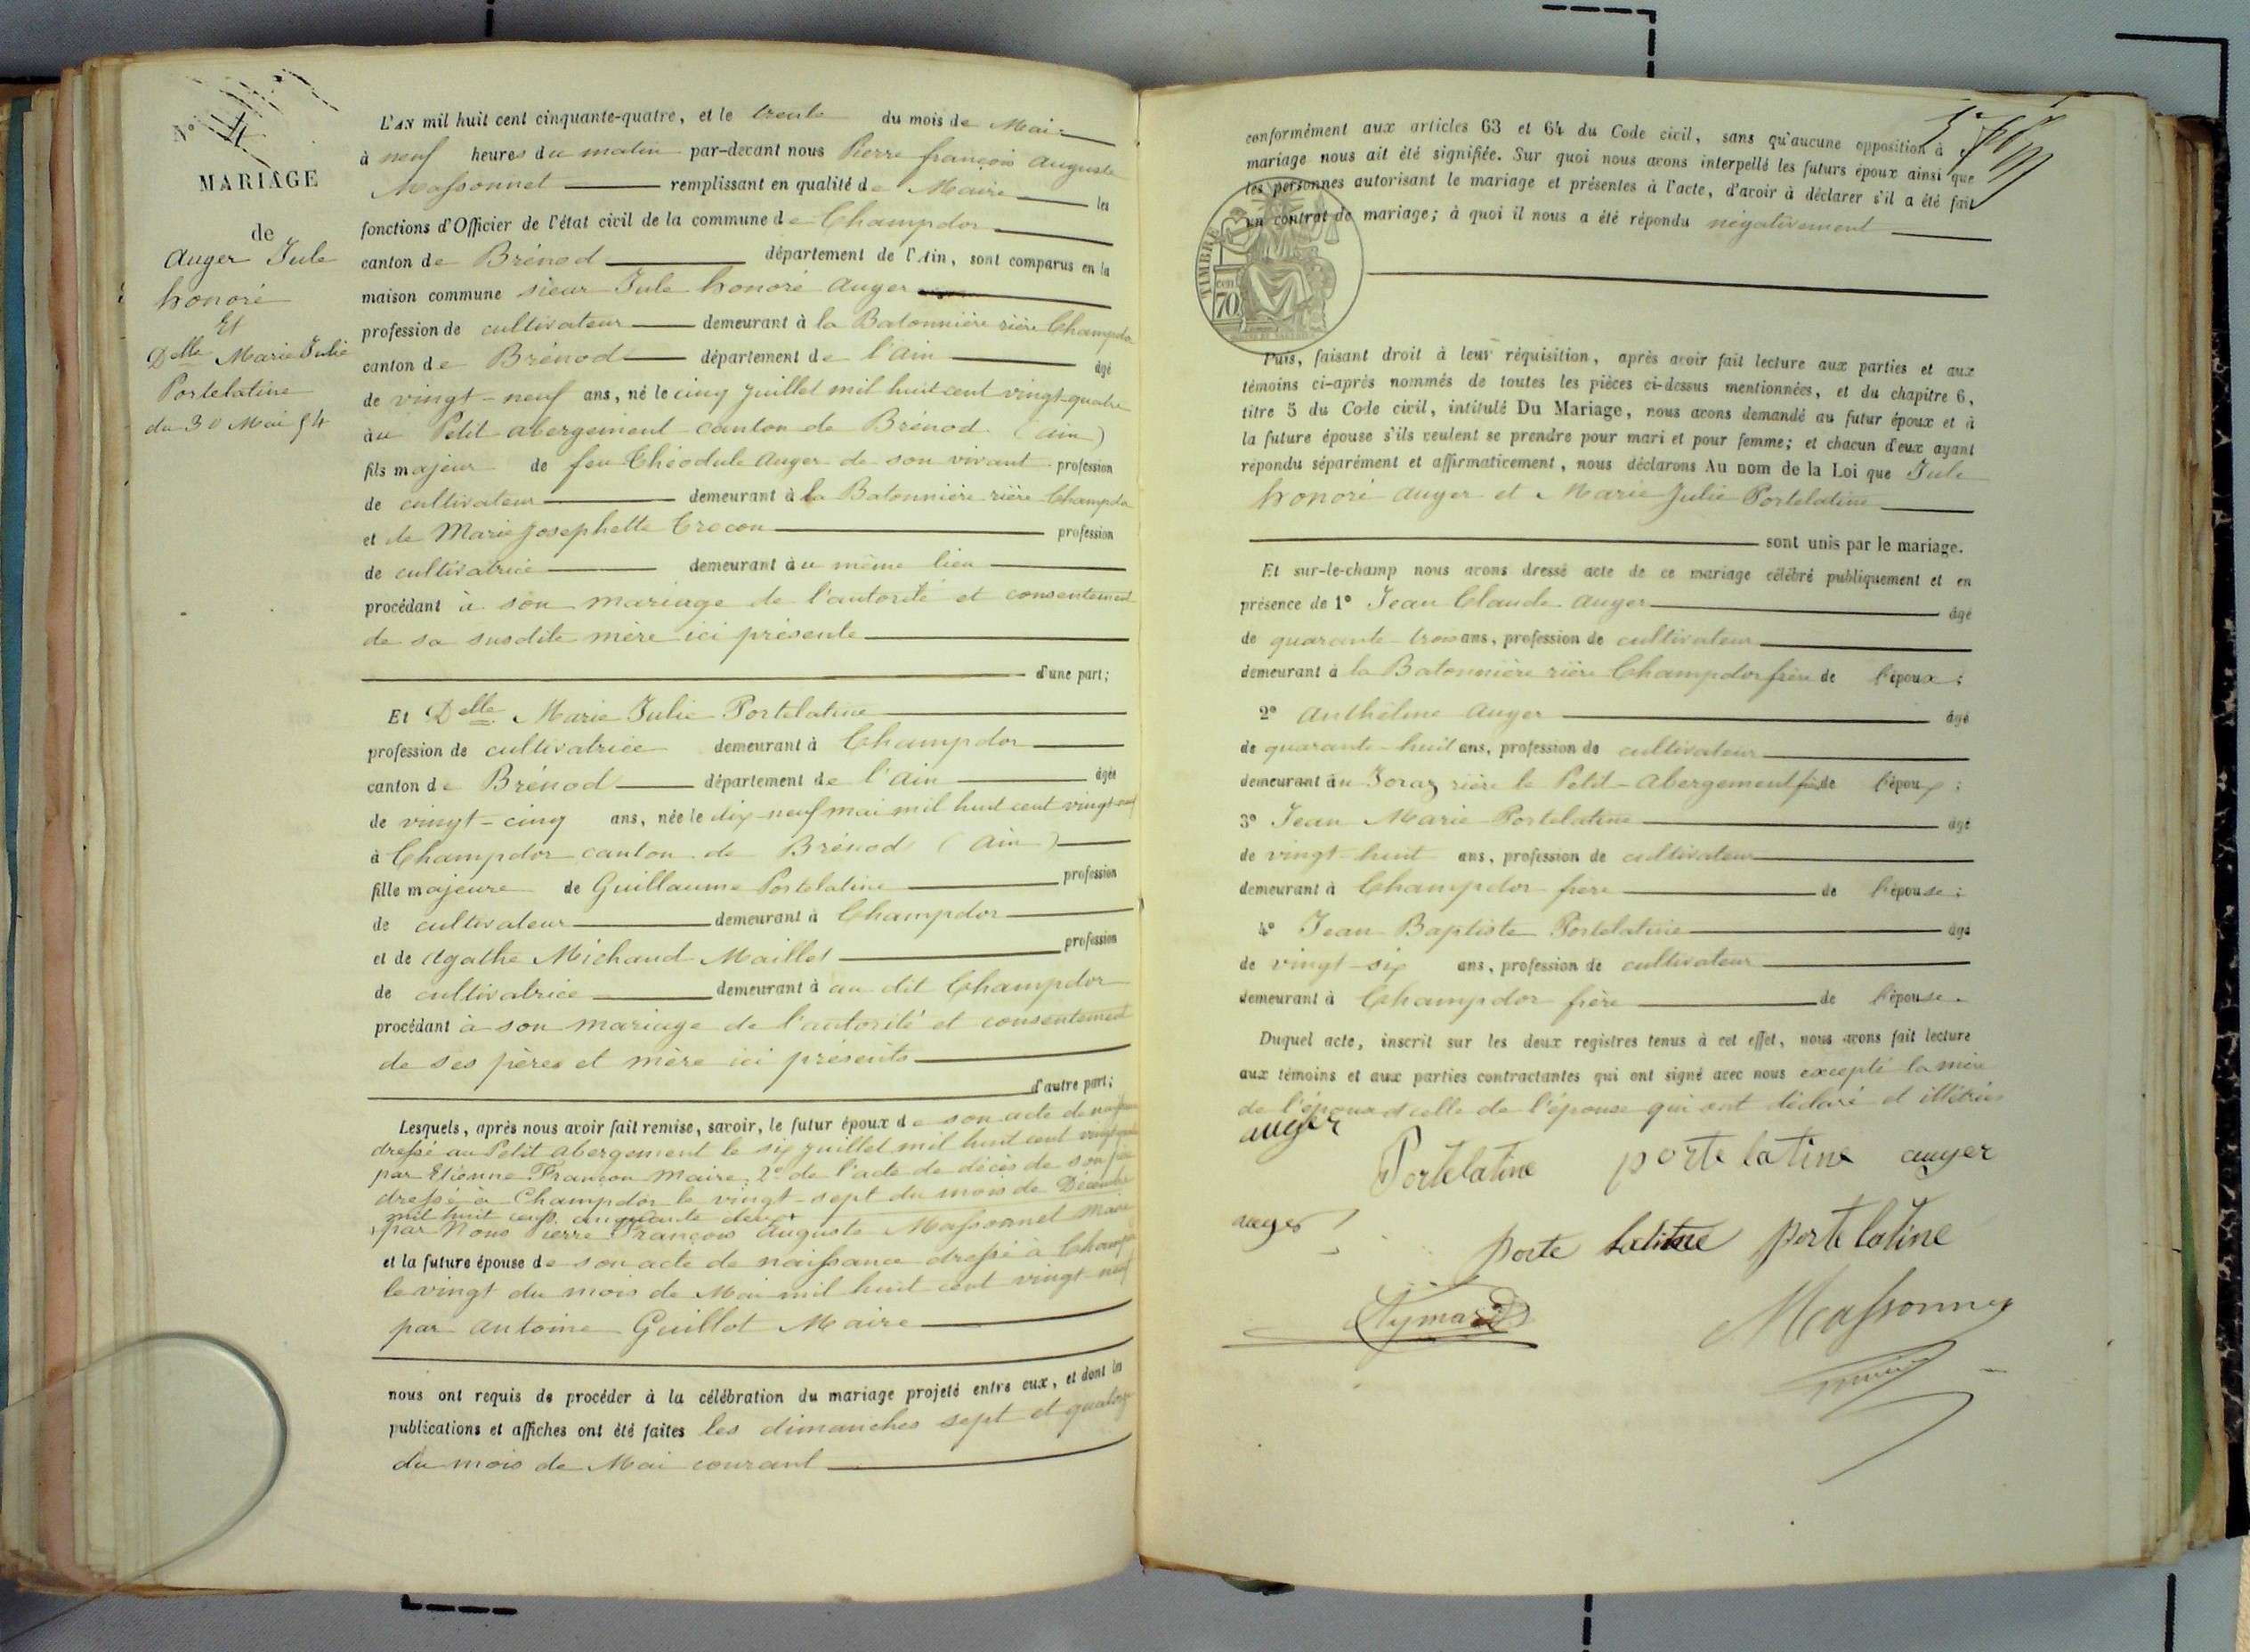 N° 4
MARIAGE
de
Auger Jule
honoré
Et
Delle Marie Julie
Portelatine
du 30 Mai 54
L'AN mil huit cent cinquante-quatre, et le trente du mois de Mai
à neuf heures du matin par-devant nous Pierre françois Auguste
Massonnet remplissant en qualité de Maire les
fonctions d'Officier de l'état civil de la commune de Champdor
canton de Brénod département de l'Ain, sont comparus en la
maison commune sieur Jule honoré Auger
profession de cultivateur demeurant à la Batonnière rière Champdor
canton de Brénod département de l'Ain âgé
de vingt-neuf ans, né le cinq juillet mil huit cent vingt-quatre
au Petit abergement canton de Brénod (Ain)
fils majeur de feu Théodule Auger de son vivant profession
de cultivateur demeurant à la Batonnière rière Champdor
et de Marie Josephette Trocon profession
de cultivatrice demeurant au même lieu
procédant à son mariage de l'autorité et consentement
de sa susdite mère ici présente
d'une part;
Et Delle Marie Julie Portelatine
profession de cultivatrice demeurant à Champdor
canton de Brénod département de l'Ain âgée
de vingt-cinq ans, née le dix-neuf mai mil huit cent vingt-neuf
à Champdor canton de Brénod (Ain)
fille majeure de Guillaume Portelatine profession
de cultivateur demeurant à Champdor
et de Agathe Michaud Maillet profession
de cultivatrice demeurant à au dit Champdor
procédant à son mariage de l'autorité et consentement
de ses pères et mère ici présents
d'autre part;
Lesquels, après nous avoir fait remise, savoir, le futur époux de son acte de naissance
dressé au Petit abergement le six juillet mil huit cent vingt quatre
par Etienne Françon Maire; 2° de l'acte de décès de son père
dressé à Champdor le vingt-sept du mois de Décembre
mil huit cent cinquante deux
par Nous Pierre François Auguste Massonnet Maire
et la future épouse de son acte de naissance dressé à Champdor
le vingt du mois de Mai mil huit cent vingt-neuf
par Antoine Guillot Maire
nous ont requis de procéder à la célébration du mariage projeté entre eux, et dont les
publications et affiches ont été faites les dimanches sept et quatorze
du mois de Mai courant
conformément aux articles 63 et 64 du Code civil, sans qu'aucune opposition à
mariage nous ait été signifiée. Sur quoi nous avons interpellé les futurs époux ainsi que
les personnes autorisant le mariage et présentes à l'acte, d'avoir à déclarer s'il a été fait
un contrat de mariage; à quoi il nous a été répondu négativement
TIMBRE
70
Puis, faisant droit à leur réquisition, après avoir fait lecture aux parties et aux
témoins ci-après nommés de toutes les pièces ci-dessus mentionnées, et du chapitre 6,
titre 5 du Code civil, intitulé Du Mariage, nous avons demandé au futur époux et à
la future épouse s'ils veulent se prendre pour mari et pour femme; et chacun d'eux ayant
répondu séparément et affirmativement, nous déclarons Au nom de la Loi que Jule
honoré Auger et Marie Julie Portelatine
sont unis par le mariage.
Et sur-le-champ nous avons dressé acte de ce mariage célébré publiquement et en
présence de 1° Jean Claude Auger âgé
de quarante-trois ans, profession de cultivateur
demeurant à la Batonnière rière Champdor frère de l'époux;
2° Anthelme Auger âgé
de quarante-huit ans, profession de cultivateur
demeurant au Joraz rière le Petit-Abergement frère de l'époux;
3° Jean Marie Portelatine âgé
de vingt-huit ans, profession de cultivateur
demeurant à Champdor frère de l'épouse;
4° Jean Baptiste Portelatine âgé
de vingt-six ans, profession de cultivateur
demeurant à Champdor frère de l'épouse.
Duquel acte, inscrit sur les deux registres tenus à cet effet, nous avons fait lecture
aux témoins et aux parties contractantes qui ont signé avec nous excepté la mère
de l'époux et celle de l'épouse qui ont déclaré et illitérées
auger
Portelatine porte latine auger
auger
porte latine porte latine
Aymard Massonnet